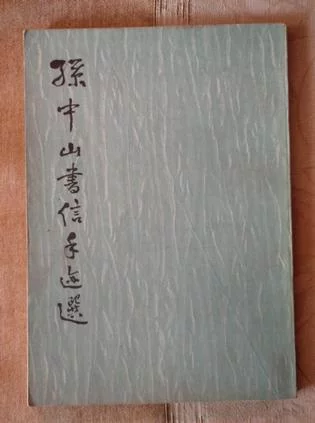 孫中山書信手迹選